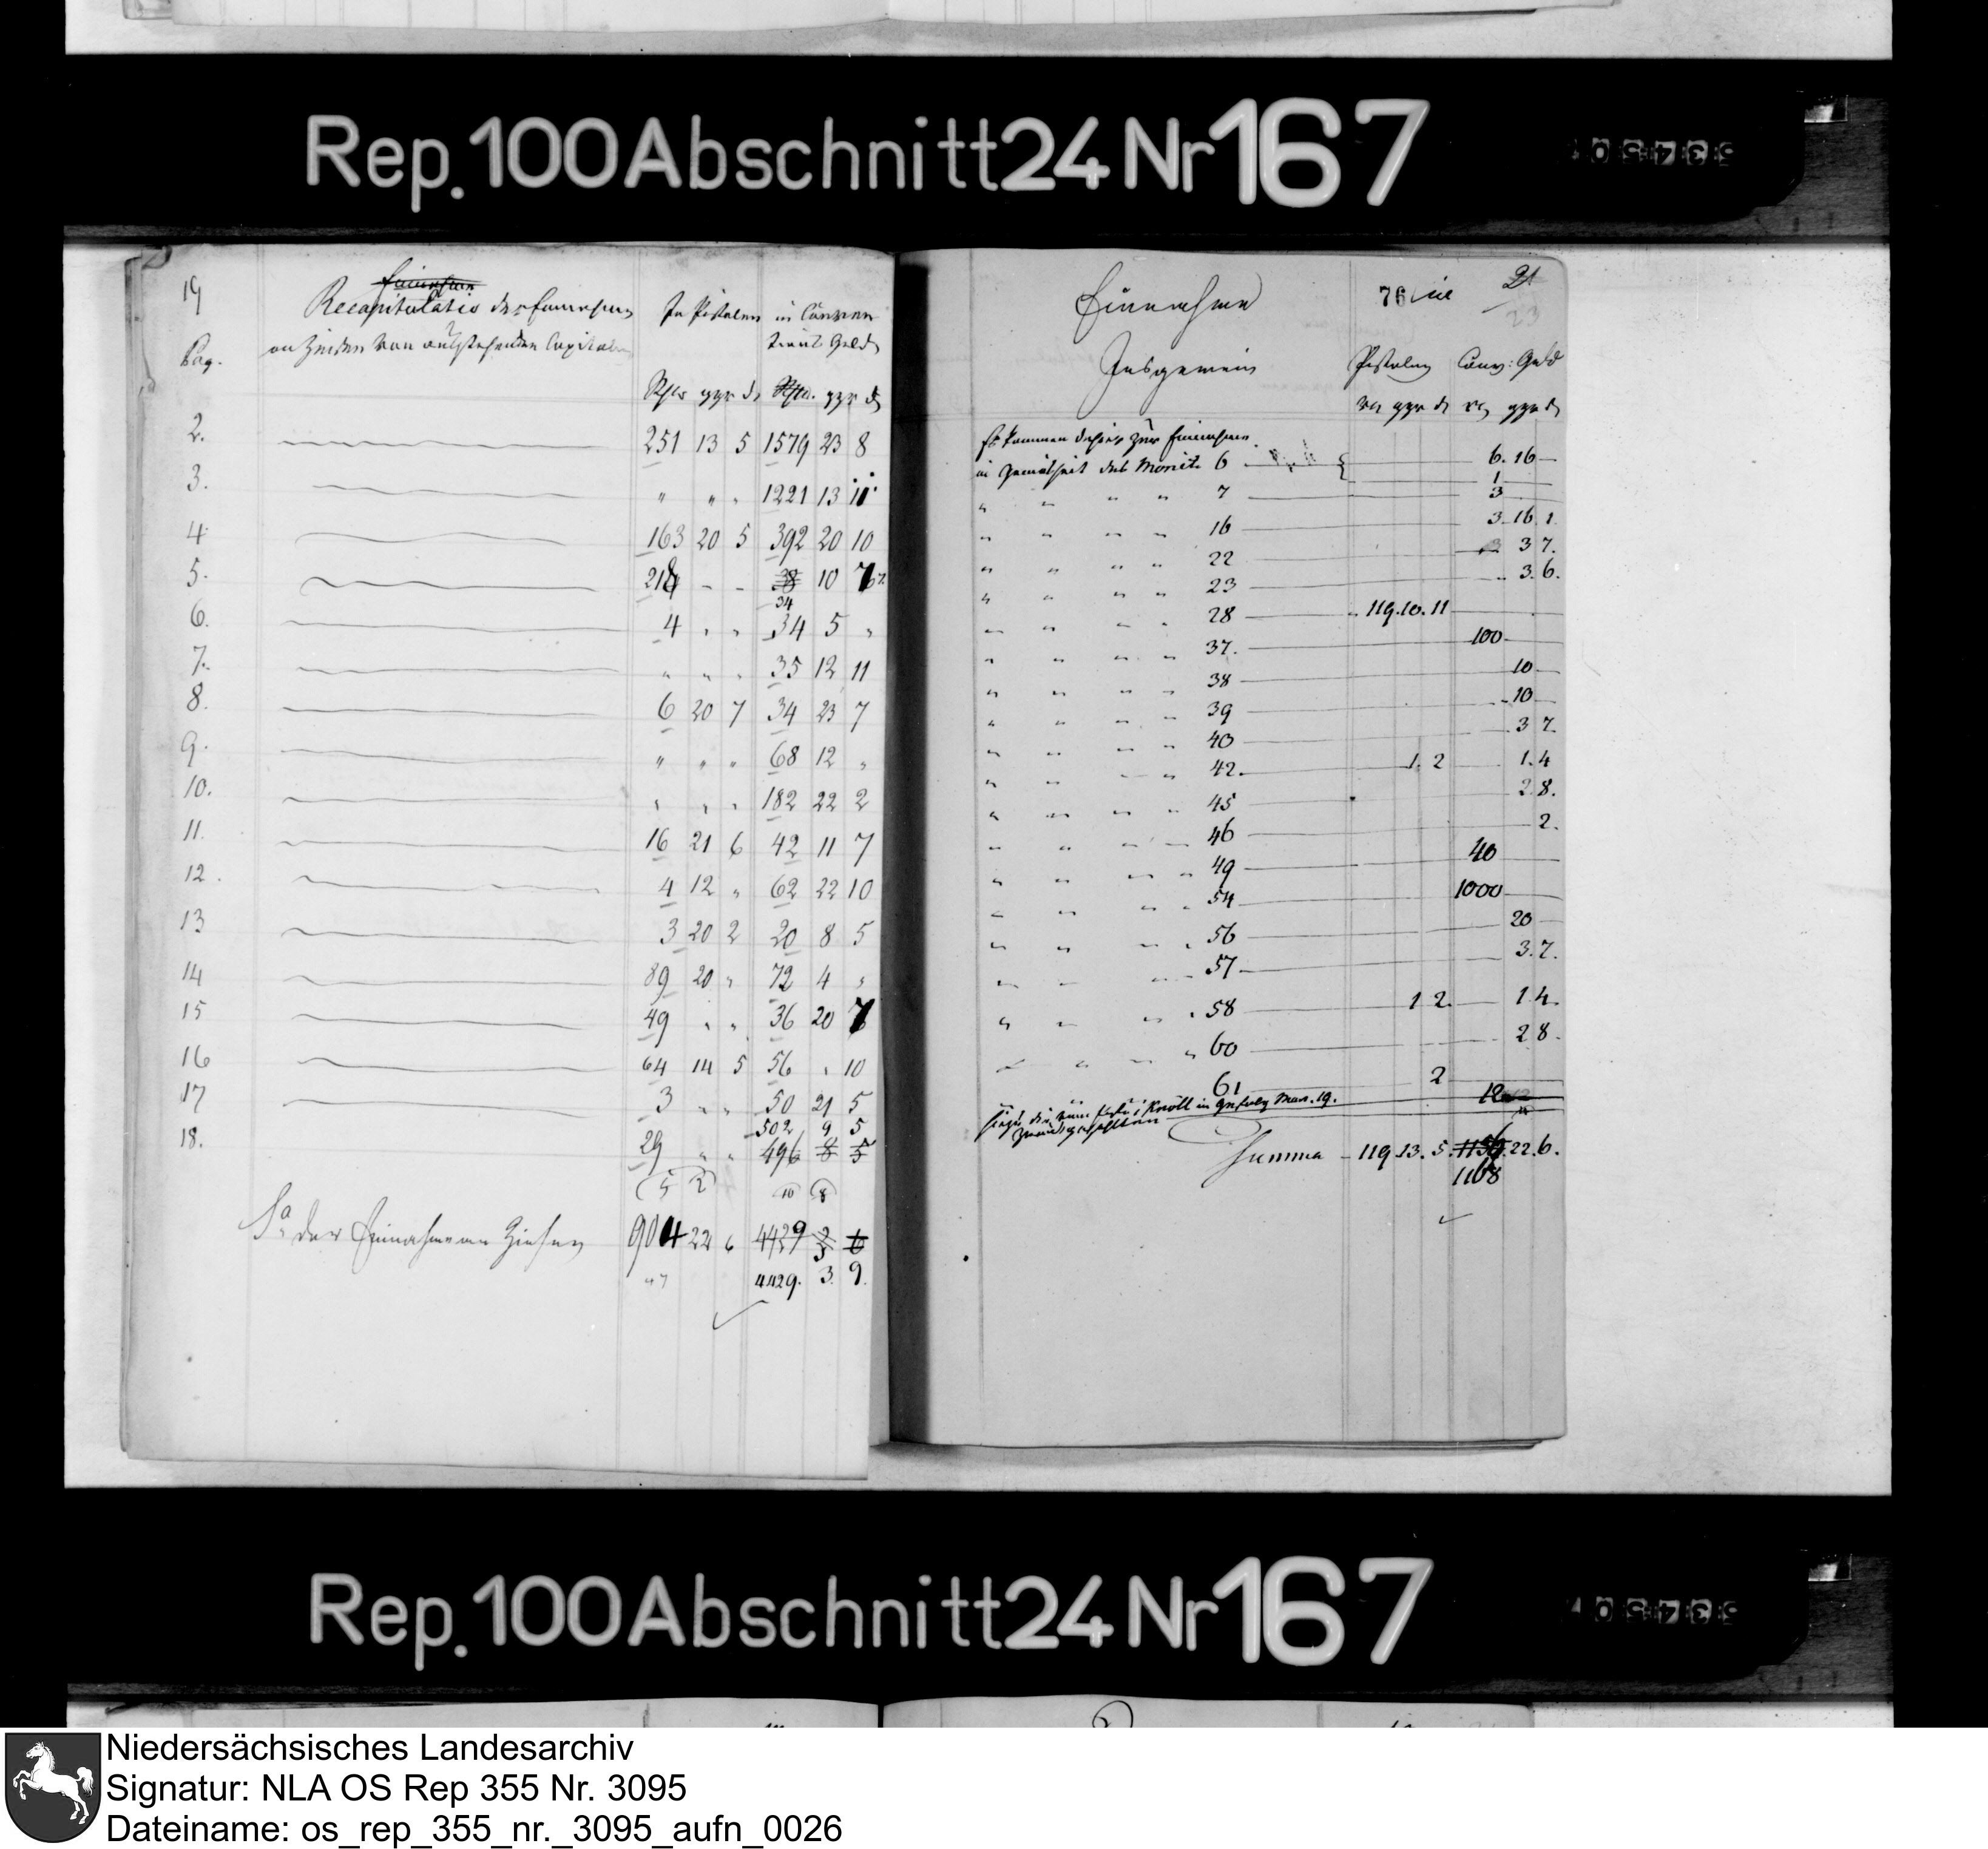 Rep. 100 Abschnitt 24 Nr 167
19
Recapitulatio der Einnahme
an Zinsen von ausstehenden Capitalien
Pag.
In Pistolen in Conven
tions Gelde
Rthlr ggr d Rthlr. ggr d
2. 251 13 5 1579 23 8
3. " " " 1221 13 11
4 163 20 5 392 20 10
5. 218 - - 34 10 7
6. 4 " " 34 5 "
7. " " " 35 12 11
8. 6 20 7 34 23 7
9. " " " 68 12 "
10. " " " 182 22 2
11. 16 21 6 42 11 7
12. 4 12 " 62 22 10
13 3 20 2 20 8 5
14 89 20 " 72 4 "
15 49 " " 36 20 7
16 64 14 5 56 " 10
17 3 " " 50 21 5
502 9 5
18. 29 " " 496 8 5
5 2 10 8
Sa der Einnahme an Zinsen 904 22 6 4429
4429. 3. 9.
Einnahme
76
21
23
Insgemein
Pistolen Conv: Geld
ggr d ggr d
Es kommen dahier zur Einnahme
in Gemäsheit des Monit. 6 6. 16
1
" " " " 7 3
" " " " 16 3. 16 1.
" " " " 22 3 7.
" " " " 23 3. 6.
" " " " 28 119. 10. 11
" " " " 37. 100
" " " " 38 10
" " " " 39 10
" " " " 40 3 7.
" " " " 42. 1. 2 1. 4
" " " " 45 2 8.
" " " " 46 2.
" " " " 49 40
" " " " 54 1000
" " " " 56 20
" " " " 57 3. 7.
" " " " 58 1 2. 1 4.
" " " " 60 2 8.
" " 61 2
Knoll in Mon. 19. 12
Summa 119. 13. 5. 1156. 22. 6.
1168
Rep. 100 Abschnitt 24 Nr 167
Niedersächsisches Landesarchiv
Signatur: NLA OS Rep 355 Nr. 3095
Dateiname: os_rep_355_nr._3095_aufn_0026